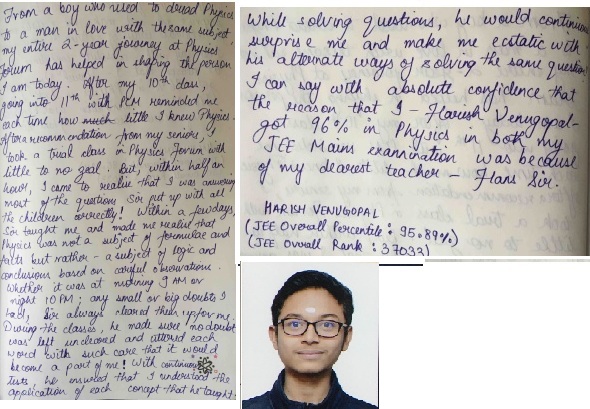 From a boy who used to dread Physics
to a man in love with the same subject
my entire 2-year journey at Physics
Forum has helped in shaping the person
I am today. After my 10th class,
going into 11th with PCM reminded me
each time how much little I knew Physics.
After a recommendation from my seniors, I
took a trial class in Physics Forum with
little to no goal. But, within half an
hour, I came to realise that I was answering
most of the questions Sir put up with all
the children correctly! Within a few days,
Sir taught me and made me realise that
Physics was not a subject of formulae and
facts but rather - a subject of logic and
conclusions based on careful observations.
Whether it was at morning 9 AM or
night 10 PM; any small or big doubts I
had, Sir always cleared them up for me.
During the classes, he made sure no doubt
was left uncleared and uttered each
word with such care that it would
become a part of me! With continuous
tests he ensured that I understood the
application of each concept that he taught.
While solving questions, he would continue
surprise me and make me ecstatic with
his alternate ways of solving the same question
I can say with absolute confidence that
the reason that I - Harish Venugopal -
got 96% in Physics in both my
JEE Mains examination was because
of my dearest teacher - Hans Sir.
HARISH VENUGOPAL
(JEE Overall Percentile : 95.89%)
(JEE Overall Rank : 37033)